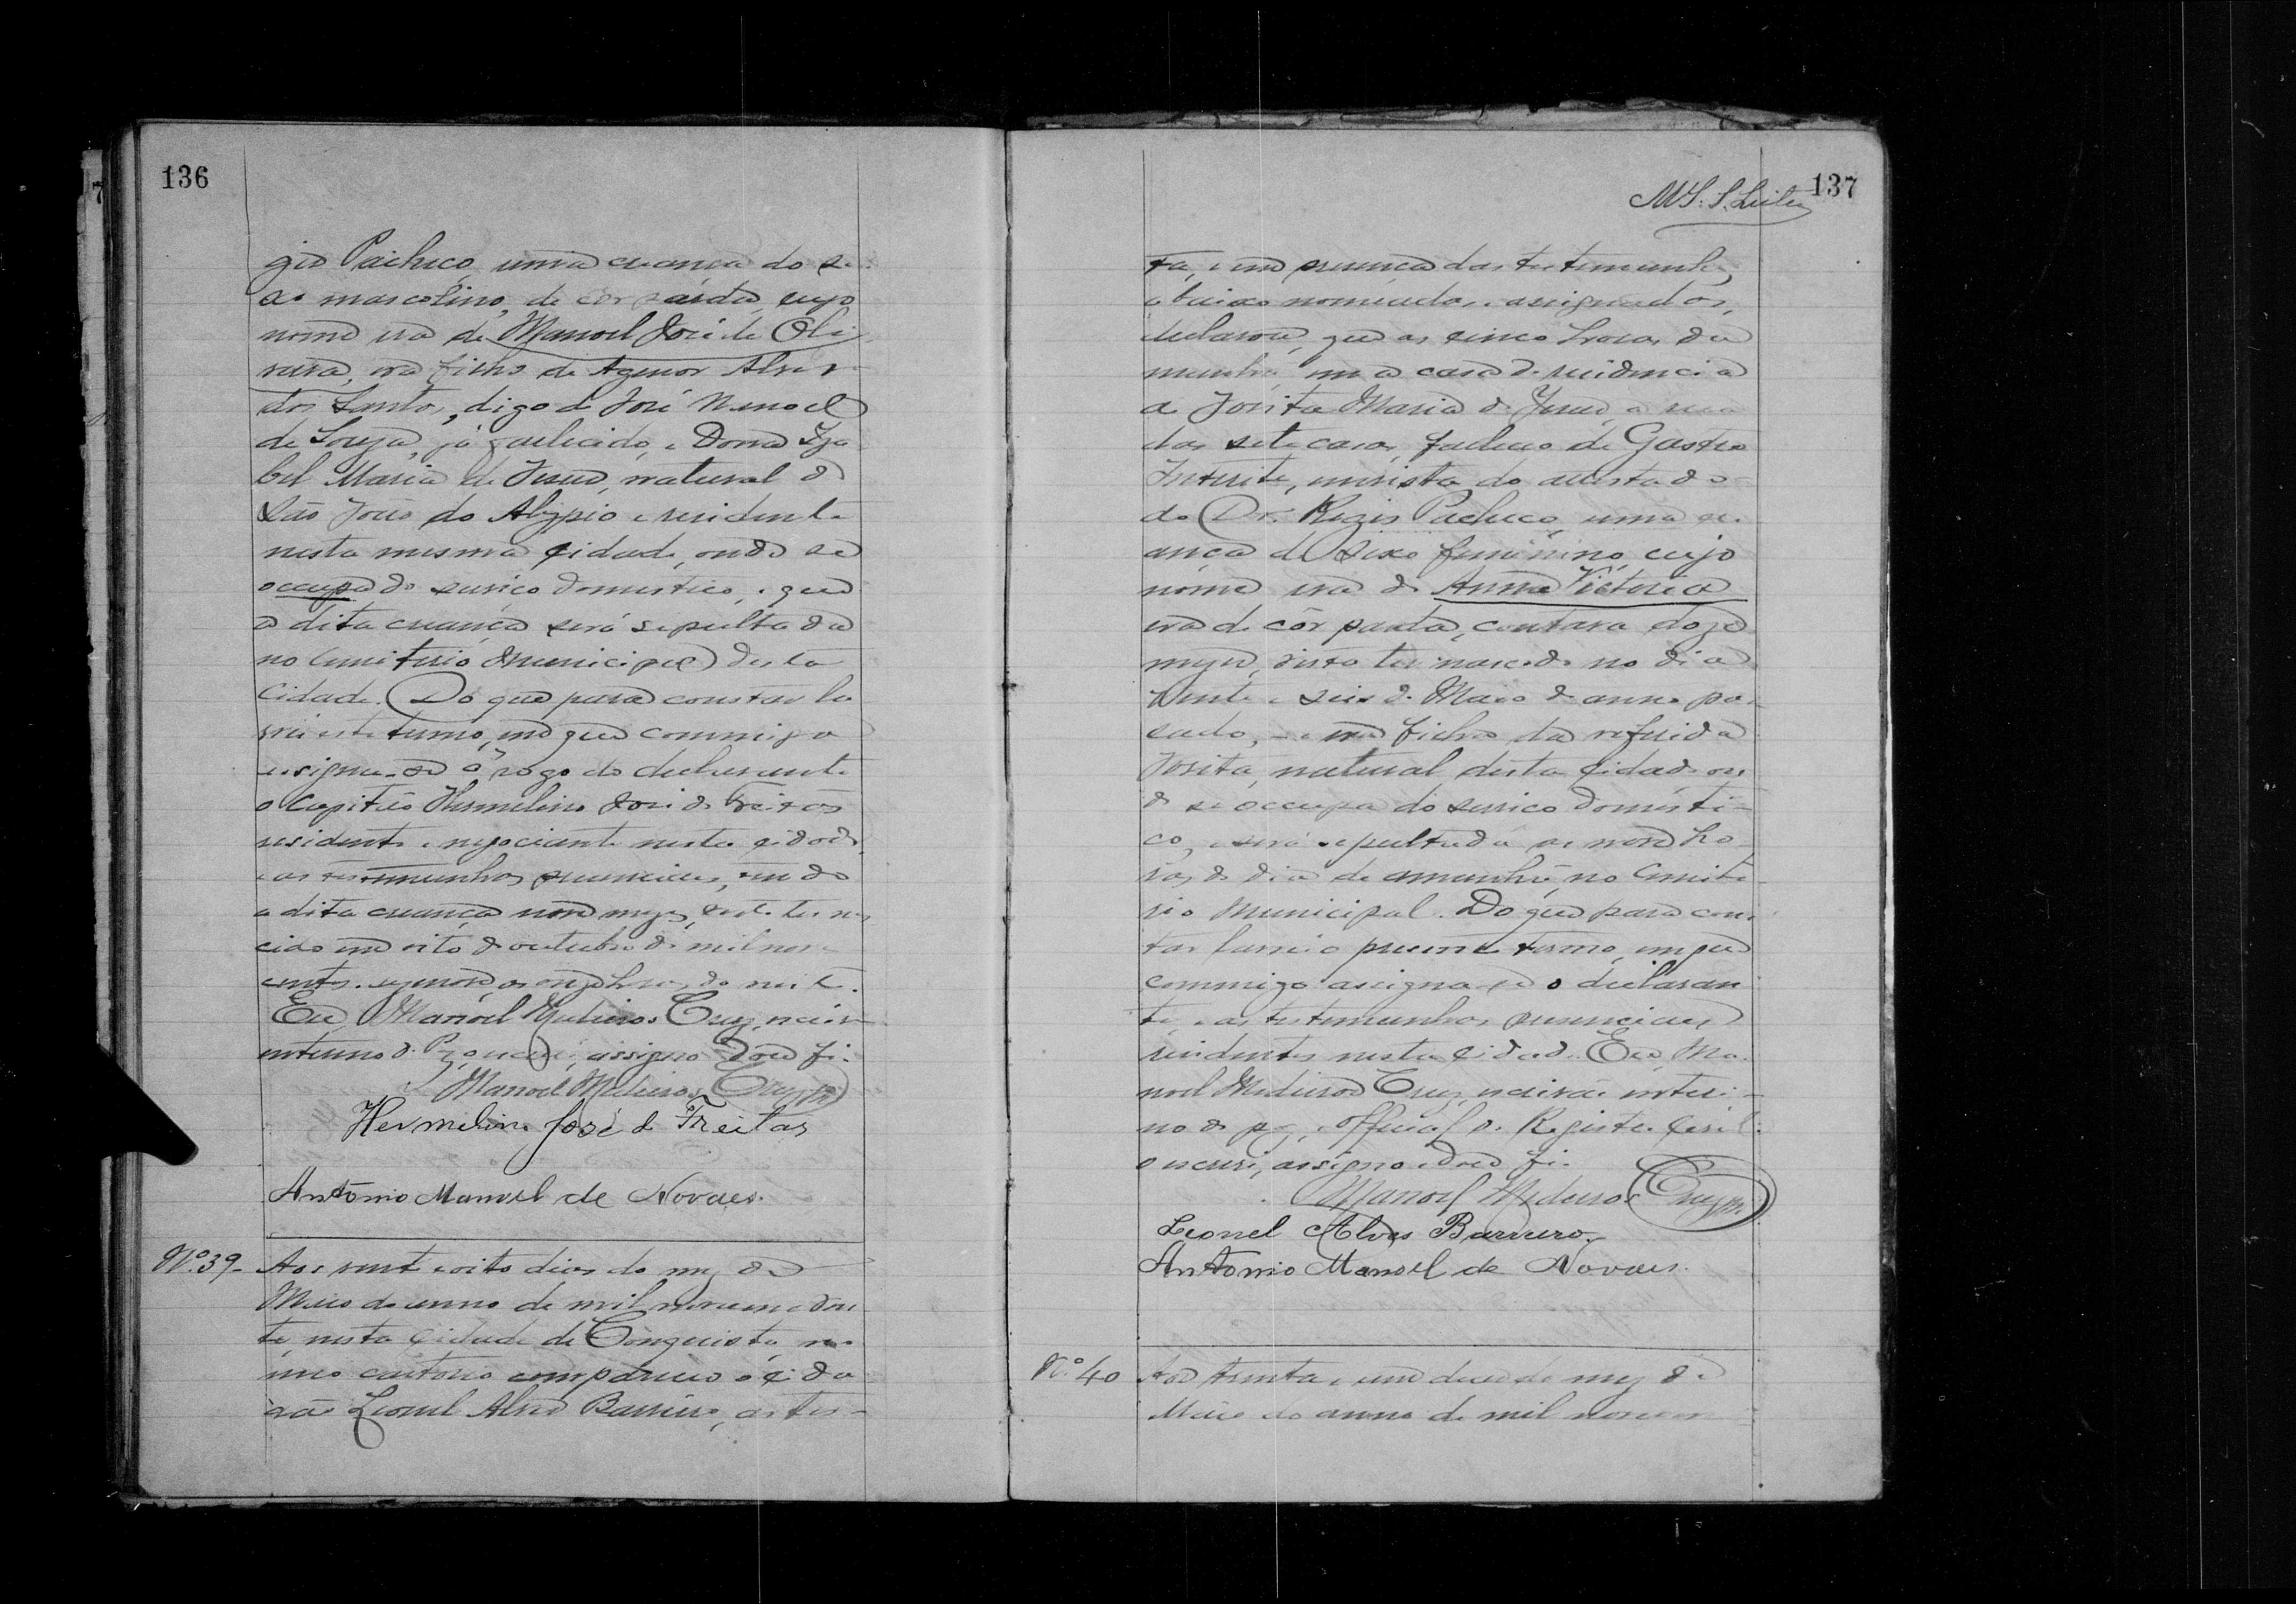 136
gio Pacheco, uma creança do se-
xo mascolino, de côr parda, cujo
nome era de Manoel José de Oli-
veira, era filho de Agenor Alves
dos Santos, digo de José Manoel
de Souza, já fallecido, e Dona Iza
bel Maria de Jesus, natural de
São João do Alypio e residente
nesta mesma cidade, onde se
occupa do serviço domestico, e que
a dita creança será sepultada
no Cemiterio Municipal desta
Cidade. Do que para constar la
vrei este termo, em que commigo
assigna-se á rogo do declarante
o Capitão Hermelino José de Freitas
residente e negociante nesta cidade,
e as testemunhas presenciaes, tendo
a dita creança nove mezes, visto ter nas
cido em oito de outubro de mil nove
centos e as onze horas da noite.
Eu, Manoel Medeiros Cruz, escrivão
interino de Paz, o escrevi, assigno e dou fé.
Manoel Medeiros Cruz
Hermelino José de Freitas
Antonio Manoel de Novaes.
Nº 39- Aos vinte e oito dias do mez de
Maio do anno de mil novecentos e
nesta cidade de Conquista, em
meu cartorio compareceo o cida
dão Leonel Alves Barreiro, as tes-
137
M S. S. Leite
ta, e em presença das testemunhas
abaixo nomeadas e assignadas,
declarou, que as cinco horas da
manhã, em a casa de residencia
de Josita Maria de Jesus, a rua
das sete casas, falleceo de Gastro
Interite, em vista do attestado
do Dr. Regis Pacheco, uma cre-
ança do sexo feminino, cujo
nome era de Anna Victoria
era de côr parda, contava doze
mezes, visto ter nascido no dia
vinte e seis de Maio do anno pas-
sado, e era filha da referida
Josita, natural desta cidade on
de se occupa do serviço domesti-
co, e será sepultada as nove ho-
ras do dia de amanhã, no Cemite-
rio Municipal. Do que para cons-
tar lavrei o presente termo, em que
commigo assigna-se o declaran
te, e as testemunhas presenciaes
residentes nesta cidade. Eu, Ma-
noel Medeiros Cruz, escrivão interi-
no de paz, e Official do Registro Civil
o escrevi, assigno e dou fé.
Manoel Medeiros Cruz
Leonel Alves Barreiro.
Antonio Manoel de Novaes.
Nº 40 Aos trinta e um dias do mez de
Maio do anno de mil novecen